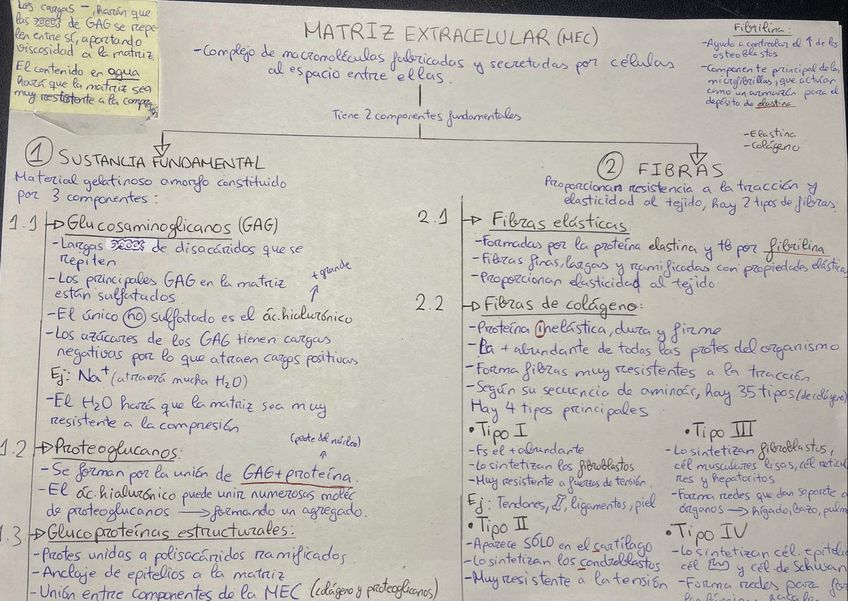 Las cargas - harán que
las de GAG se repe
len entre sí, aportando
viscosidad a la matriz
El contenido en agua
hará que la matriz sea
muy resistente a la compre
MATRIZ EXTRACELULAR (MEC)
-Complejo de macromoléculas fabricadas y secretadas por células
al espacio entre ellas.
Tiene 2 componentes fundamentales
Fibrilina:
-Ayuda a controlar el ↑ de los
osteoblastos
-Componente principal de las
microfibrillas, que actúan
como un armazón para el
depósito de elastina
-Elastina
-Colágeno
1 SUSTANCIA FUNDAMENTAL
Material gelatinoso amorfo constituido
por 3 componentes:
1.1 → Glucosaminoglicanos (GAG)
-Largas de disacáridos que se
repiten
-Los principales GAG en la matriz
están sulfatados
+grande
↑
-El único no sulfatado es el ác. hialurónico
-Los azúcares de los GAG tienen cargas
negativas por lo que atraen cargas positivas
Ej: Na+ (atraerá mucha H2O)
-El H2O hará que la matriz sea muy
resistente a la compresión
1.2 → Proteoglucanos:
(parte del núcleo)
↑
-Se forman por la unión de GAG+proteína.
-El ác. hialurónico puede unir numerosas moléc
de proteoglucanos → formando un agregado.
1.3 → Glucoproteínas estructurales:
-Protes unidas a polisacáridos ramificados
-Anclaje de epitelios a la matriz
-Unión entre componentes de la MEC (colágeno y proteoglicanos)
2 FIBRAS
Proporcionan resistencia a la tracción y
elasticidad al tejido, hay 2 tipos de fibras:
2.1 → Fibras elásticas:
-Formadas por la proteína elastina y tb por fibrilina
-Fibras finas, largas y ramificadas con propiedades elásticas
-Proporcionan elasticidad al tejido
2.2 → Fibras de colágeno:
-Proteína inelástica, dura y firme
-La + abundante de todas las protes del organismo
-Forma fibras muy resistentes a la tracción
-Según su secuencia de aminoác, hay 35 tipos (de colágeno)
Hay 4 tipos principales
• Tipo I
-Es el +abundante
-Lo sintetizan los fibroblastos
-Muy resistente a fuerzas de tensión.
Ej: Tendones, ligamentos, piel
• Tipo II
-Aparece SÓLO en el cartílago
-Lo sintetizan los condroblastos
-Muy resistente a la tensión
• Tipo III
-Lo sintetizan fibroblastos,
cél musculares lisas, cél reticula
res y hepatocitos
-Forma redes que dan soporte a
órganos → hígado, bazo, pulm
• Tipo IV
-Lo sintetizan cél. epitelia
cél y cél de Schwan
-Forma redes para